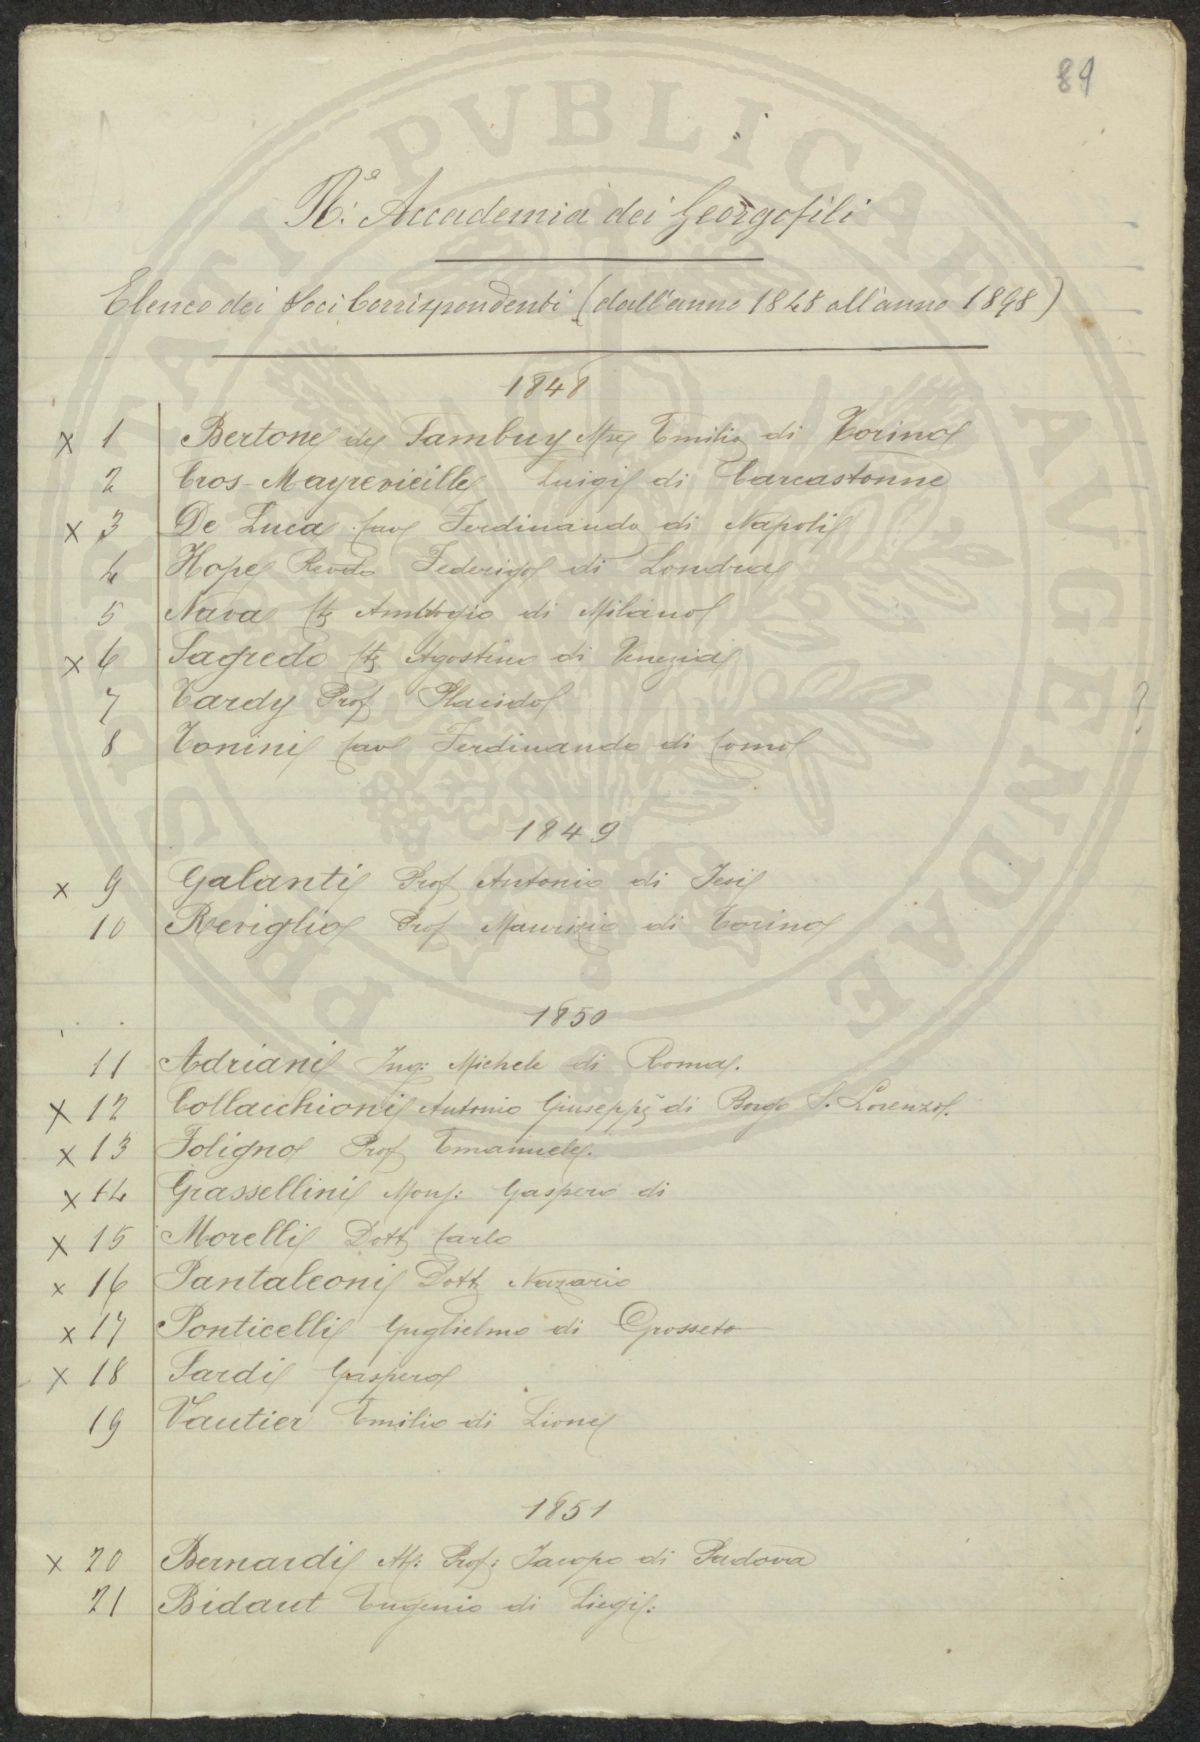 89
R.e Accademia dei Georgofili
Elenco dei Soci Corrispondenti (dall'anno 1848 all'anno 1898)
1848
x 1 Bertone de Sambuy Mse Emilio di Torino
2 Cros-Mayrevieille Luigi di Carcastonne
x 3 De Luca Cav Ferdinando di Napoli
4 Hope Revdo Federigo di Londra
5 Nava Cte Ambrogio di Milano
x 6 Sagredo Cte Agostino di Venezia
7 Tardy Prof Placido ?
8 Tonini Cav Ferdinando di Como
1849
x 9 Galanti Prof Antonio di Jesi
10 Reviglio Prof Maurizio di Torino
1850
11 Adriani Ing: Michele di Roma.
x 12 Collacchioni Antonio Giuseppe di Borgo S. Lorenzo.
x 13 Foligno Prof Emanuele.
x 14 Grassellini Mons: Gaspero di
x 15 Morelli Dott Carlo
x 16 Pantaleoni Dott Nazario
x 17 Ponticelli Guglielmo di Grosseto
x 18 Sardi Gaspero
19 Vautier Emilio di Lione
1851
x 20 Bernardi Ab: Prof: Jacopo di Padova
21 Bidaut Eugenio di Liegi:
PVBLICAE AVGENDAE PROSPERITATI